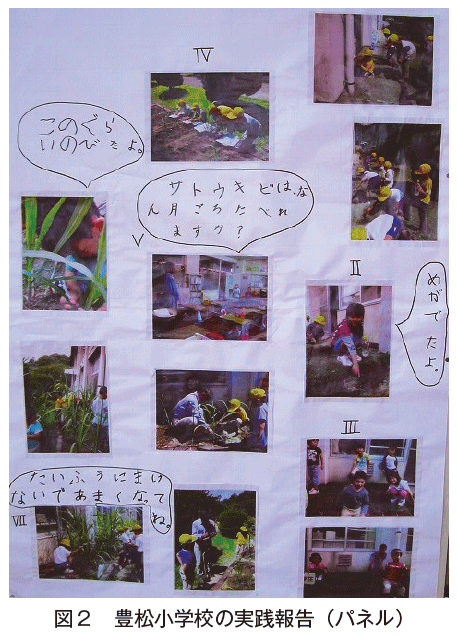 Ⅳ
このぐら
いのびたよ。
サトウキビは、な
ん月ごろたべれ
ますか?
Ⅴ
Ⅱ
めがでたよ。
Ⅲ
たいふうにまけ
ないであまくなって
ね。
Ⅶ
図2 豊松小学校の実践報告(パネル)